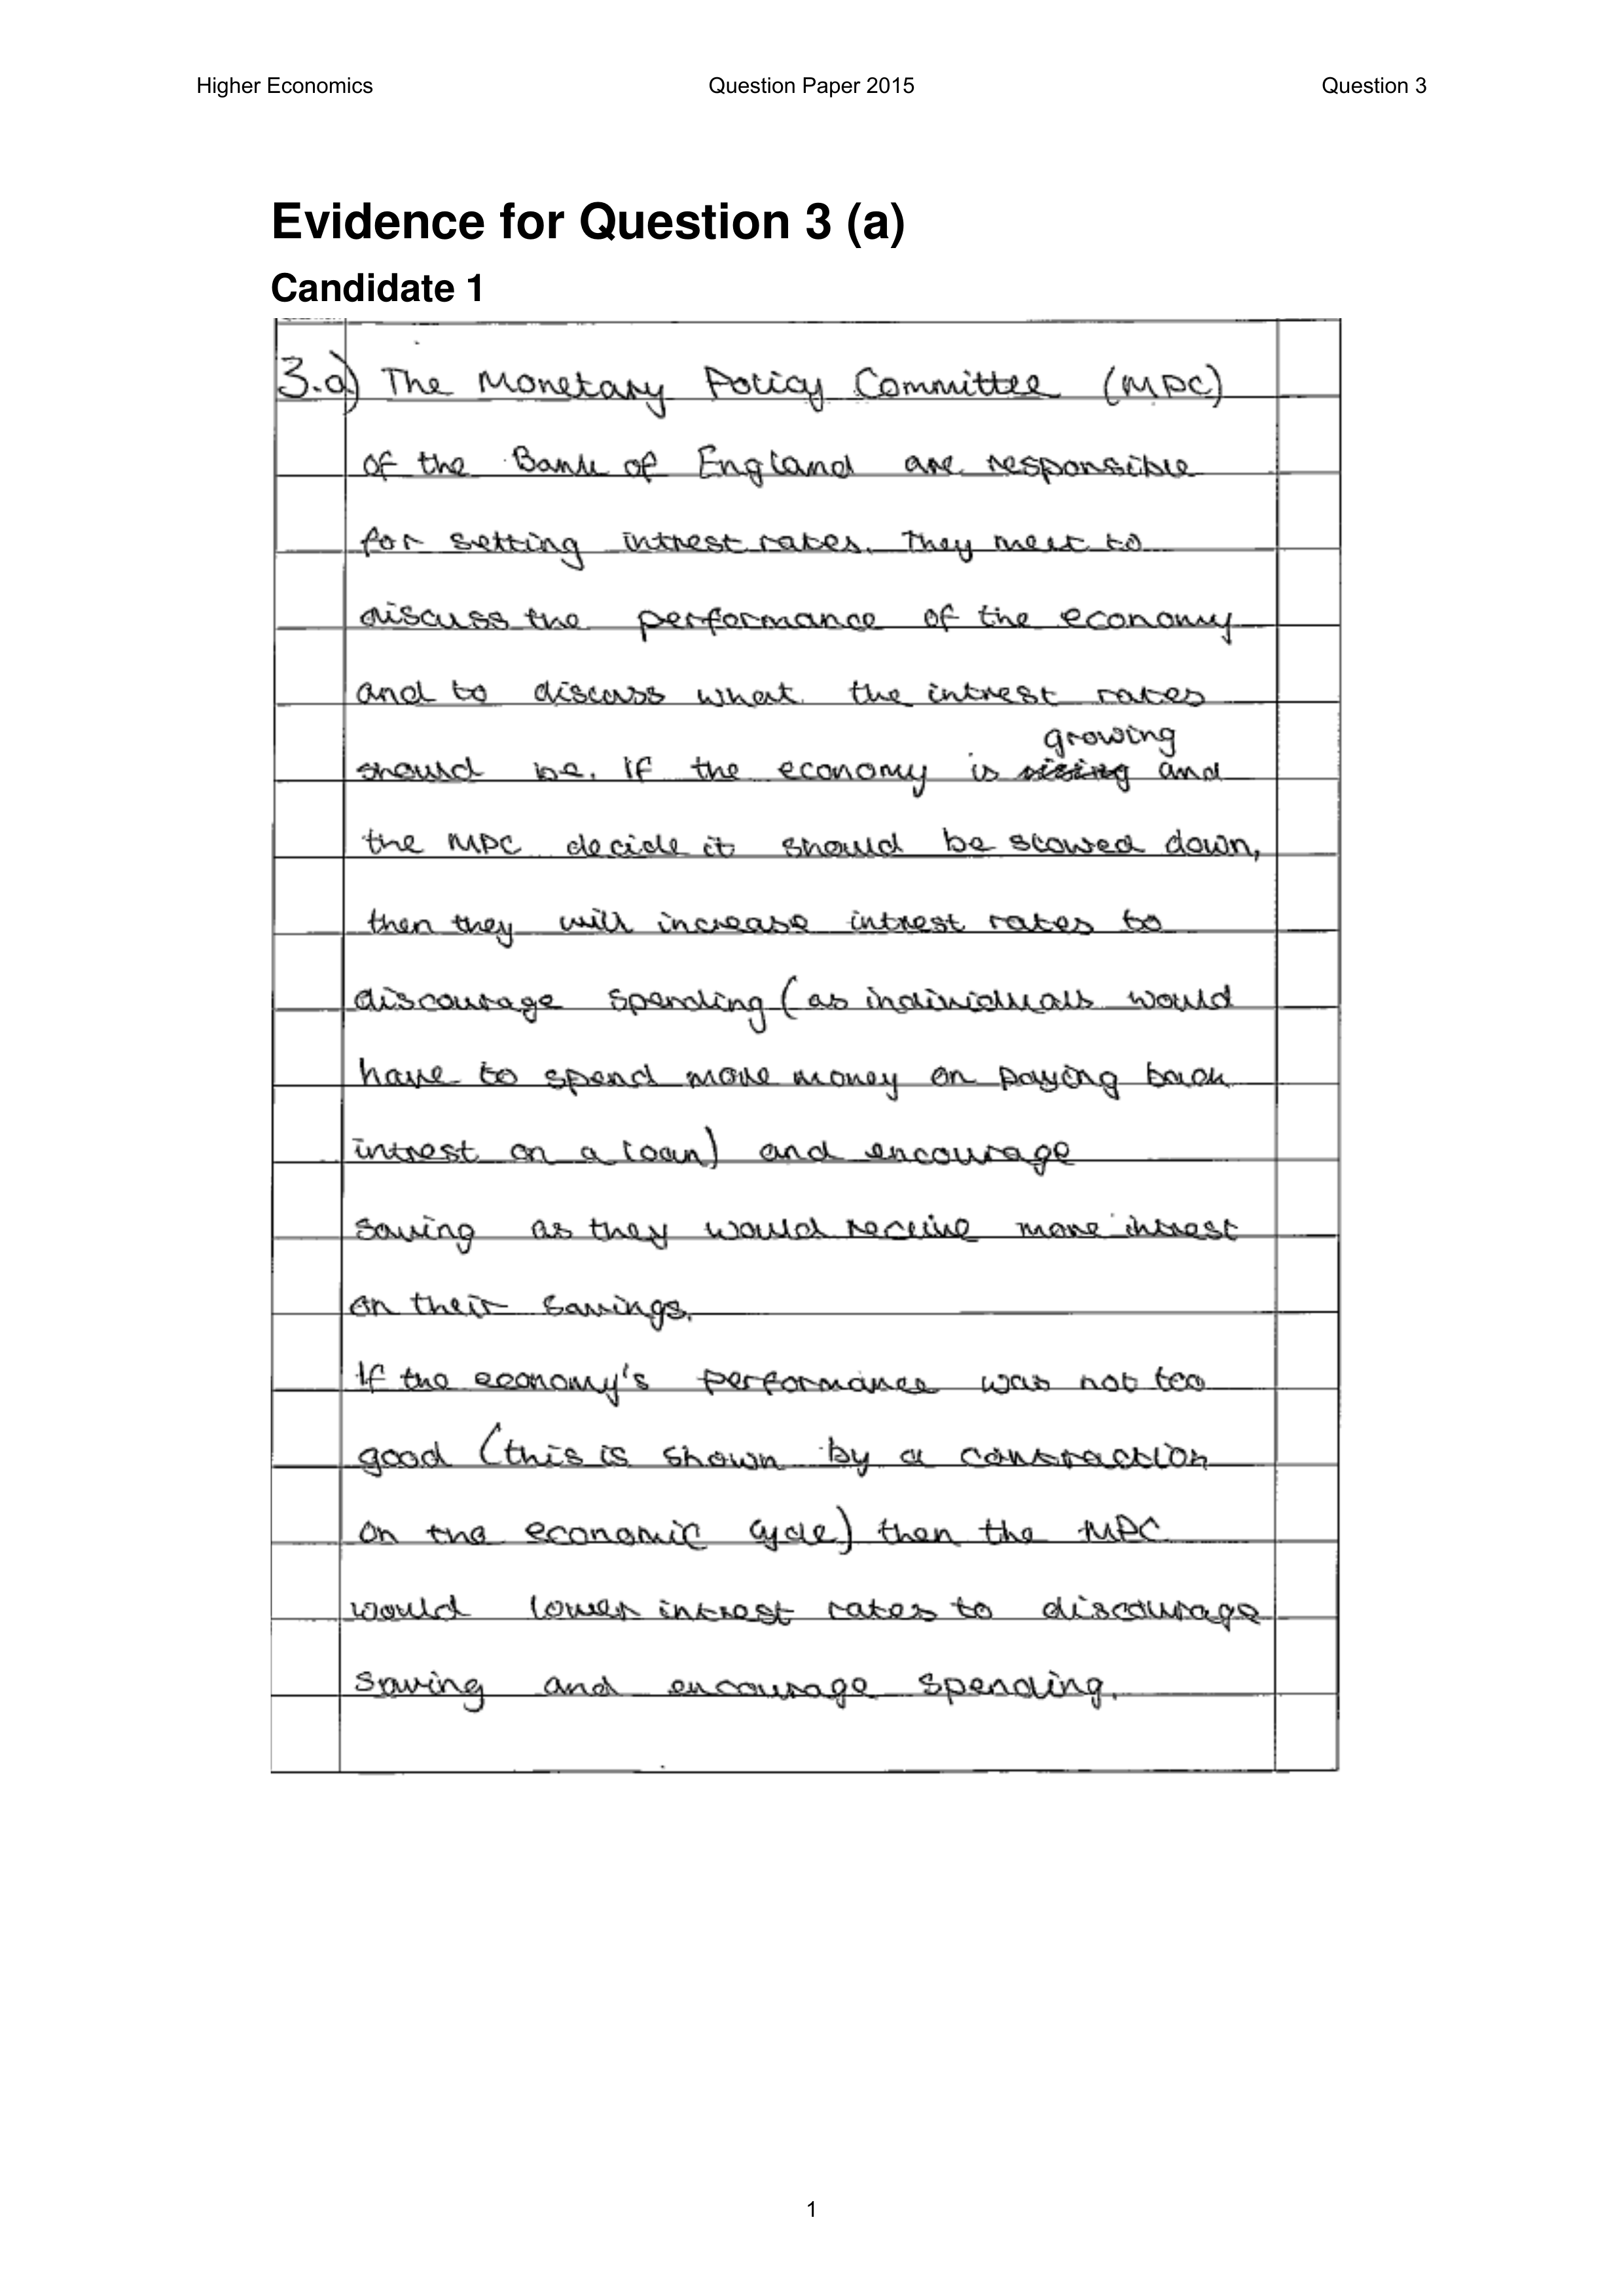 Higher Economics Question Paper 2015 Question 3
Evidence for Question 3 (a)
Candidate 1
3.a) The Monetary Policy Committee (MPC)
of the Bank of England are responsible
for setting intrest rates. They meet to
discuss the performance of the economy
and to discuss what the intrest rates
growing
should be. If the economy is rising and
the MPC decide it should be slowed down,
then they will increase intrest rates to
discourage spending (as individuals would
have to spend more money on paying back
intrest on a loan) and encourage
saving as they would receive more intrest
on their savings.
If the economy's performance was not too
good (this is shown by a contraction
on the economic cycle) then the MPC
would lower intrest rates to discourage
saving and encourage spending.
1